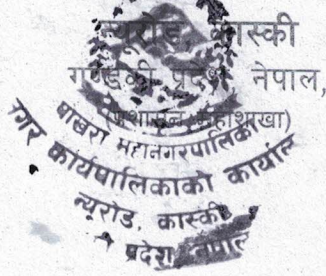 न्यूरोड, कास्की
गण्डकी प्रदेश नेपाल,
(प्रशासन महाशाखा)
पोखरा महानगरपालिका
नगर कार्यपालिकाको कार्यालय
न्यूरोड, कास्की
प्रदेश नेपाल